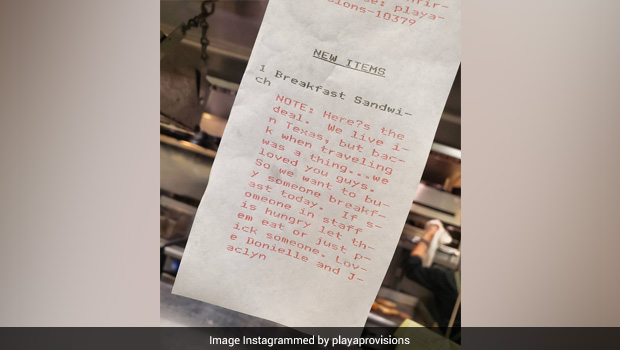 se: playa-
sions-10379
NEW ITEMS
1 Breakfast Sandwi-
ch
NOTE: Here?s the
deal. We live i-
n Texas, but bac-
k when traveling
was a thing...we
loved you guys.
So we want to bu-
y someone breakf-
ast today. If s-
omeone in staff
is hungry let th-
em eat or just p-
ick someone. Lov-
e Donielle and J-
aclyn
Image Instagrammed by playaprovisions